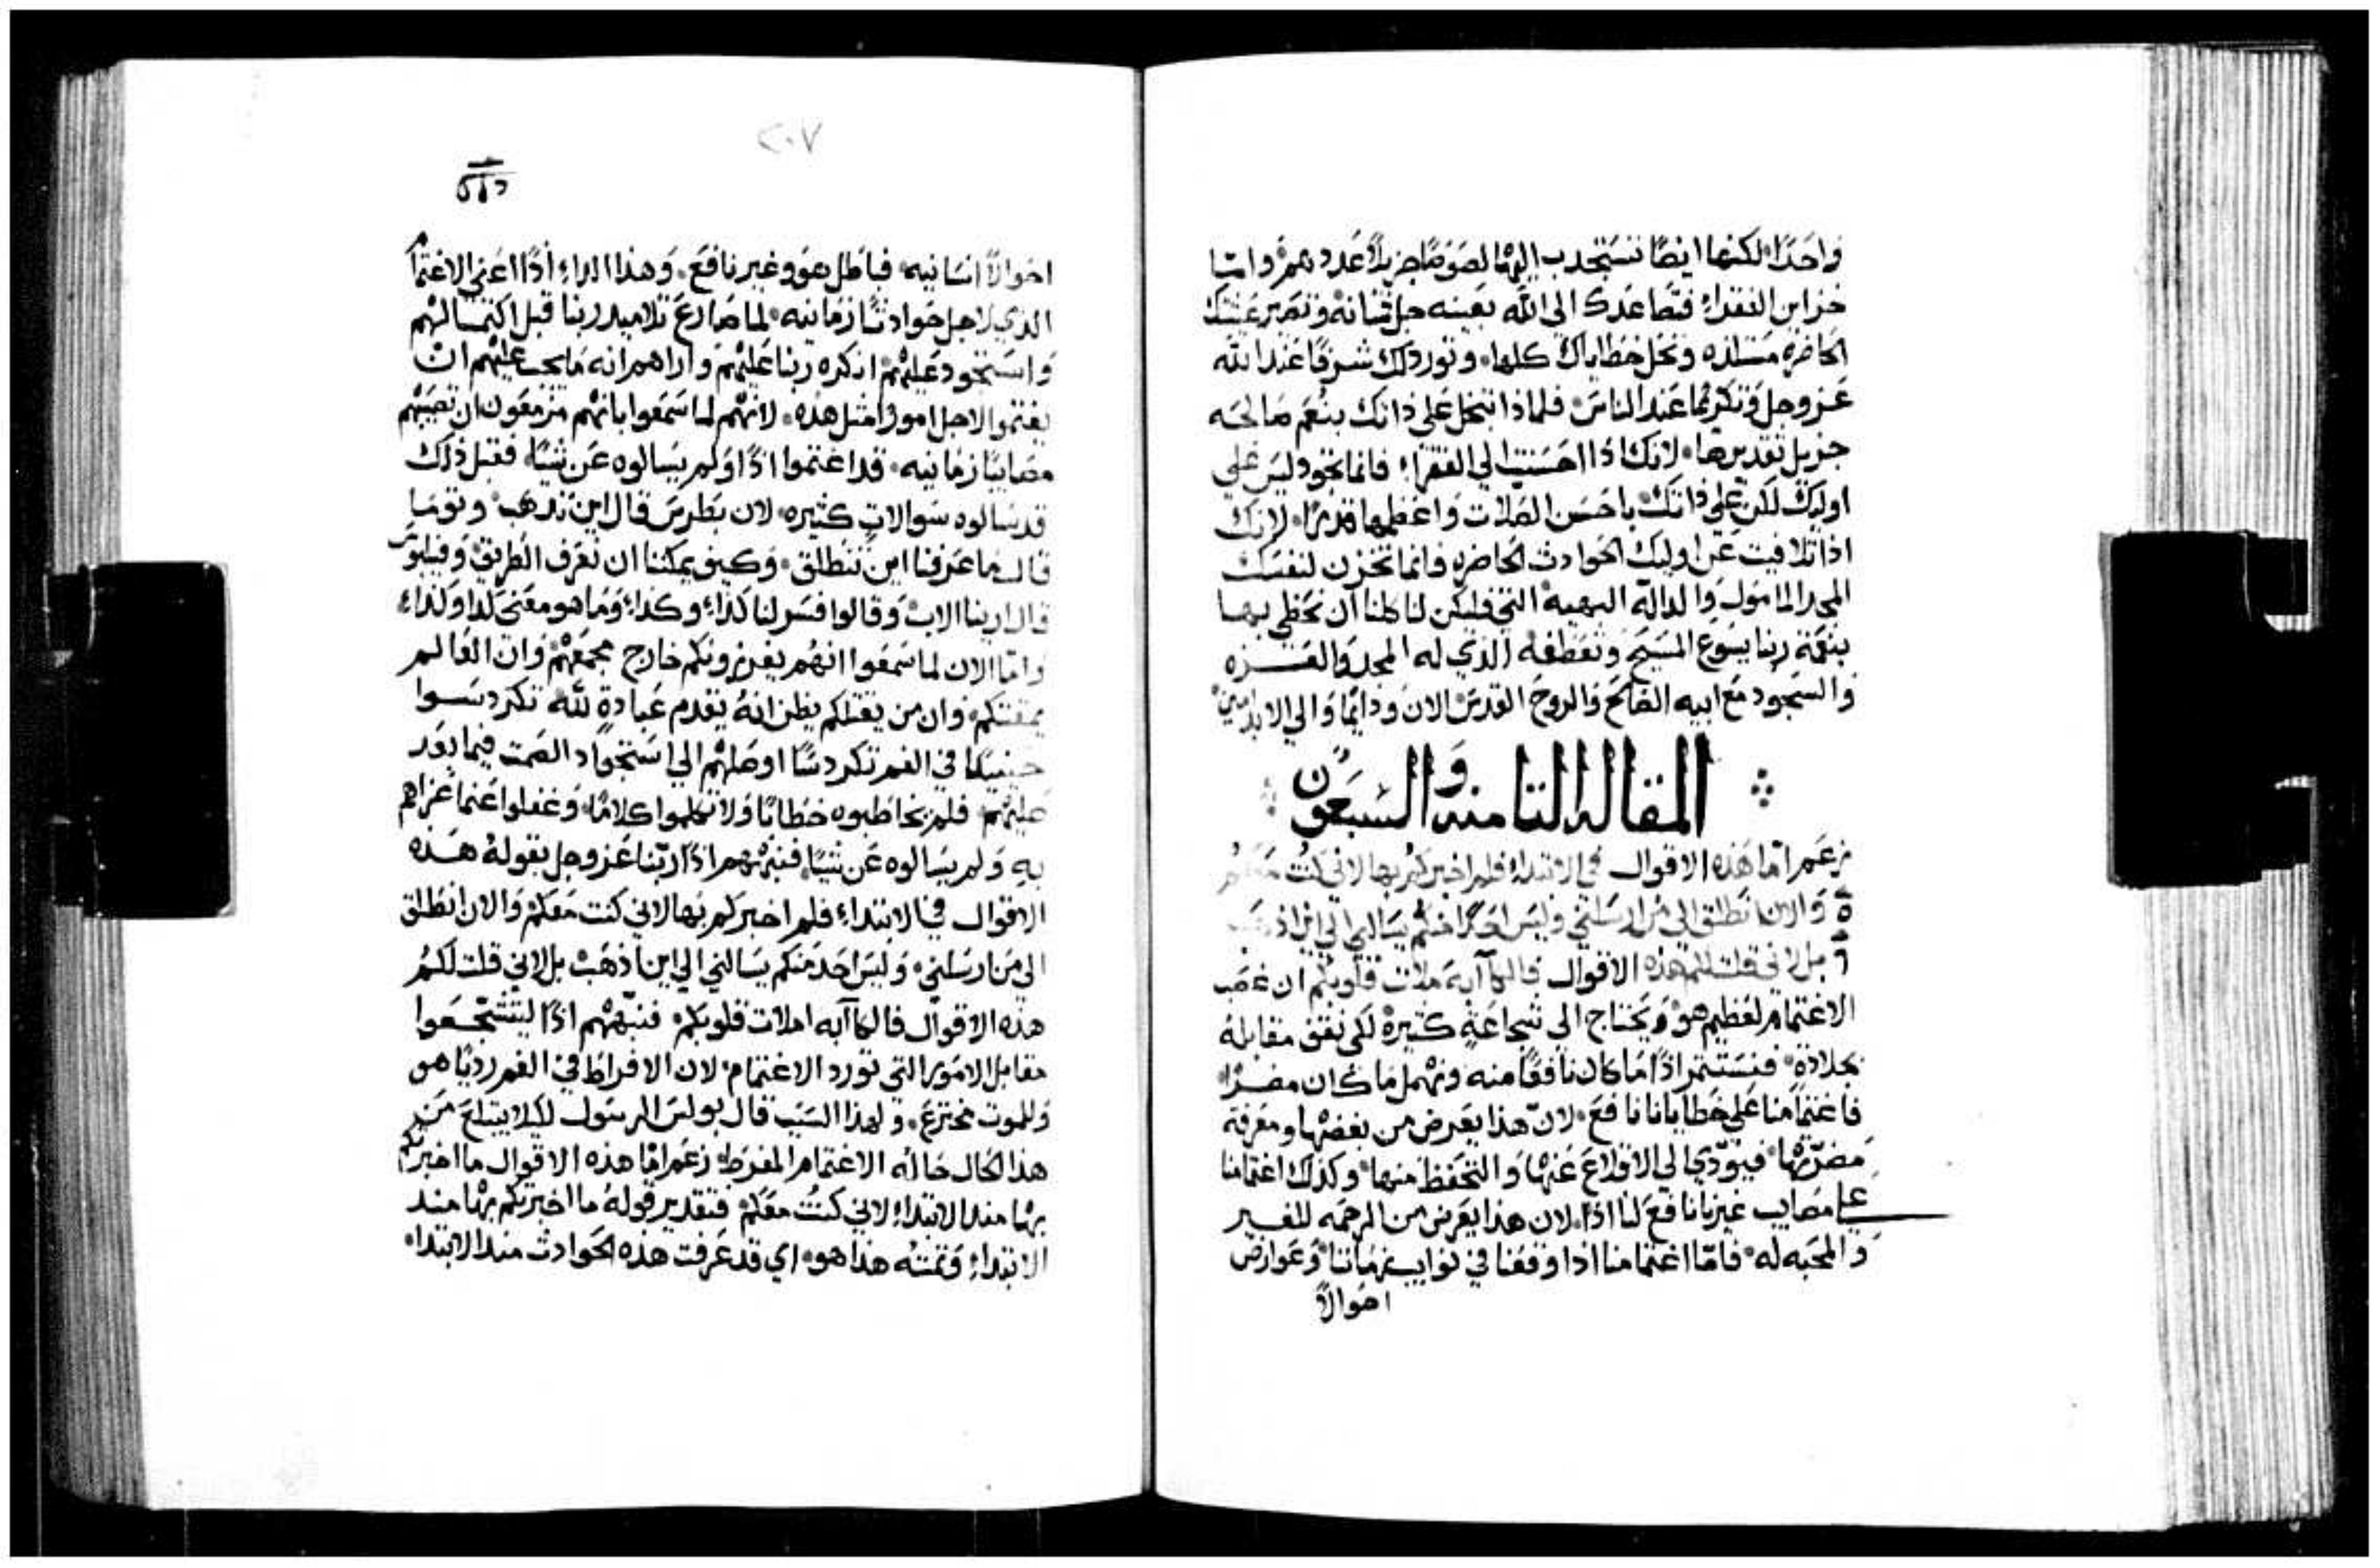 واحدًا لكنها ايضًا تستجدب اليها لصوصًا جزيلاً عددهم واما
خزاين الفقراء فتصاعدك الى الله بعينه جل ثنانه وتصير عيشتك
الحاضره مستلذه وتحل خطاياك كلها وتورد لك شرفًا عند الله
عز وجل وتكرمًا عند الناس فلماذا تبخل على ذاتك بنعم صالحه
جزيل تقديرها لانك اذا احسنت الي الفقراء فانما تجود ليس على
اوليك لكن على ذاتك باحسن الصلات واعظمها قدرًا لانك
اذا تلافيت عن اوليك الحوادث الحاضره فانما تخزن لنفسك
المجد المامول والدالة البهية التي فليكن لنا كلنا ان نحظى بها
بنعمة ربنا يسوع المسيح وتعطفه الذي له المجد والعزه
والسجود مع ابيه الصالح والروح القدس الان ودائمًا والي الابد امين
المقاله الثامنه والسبعون
زعم اما هذه الاقوال في الابتداء فلم اخبركم بها لاني كنت معكم
ة والان انطلق الى من ارسلني وليس احدًا منكم يسالني الي اين اذهب
٦ بل لاني قلت لكم هذه الاقوال فالكاآبه ملات قلوبكم ان غصب
الاغتمام لعظيم هو ويحتاج الي شجاعةٍ كثيرة لكي نقف مقابله
بجلادةٍ فنستثمر اذًا ما كان نافعًا منه ونهمل ما كان مضرًا
فاغتمامنا على خطايانا نافع لان هذا يعرض من بغضها ومعرفة
مضرتها فيودي الي الاقلاع عنها والتحفظ منها وكذلك اغتمامنا
على مصايب غيرنا نافع لنا اذًا لان هذا يعرض من الرحمه للغير
والمحبه له فاما اغتمامنا اذا وقفنا في نوايب زماننا وعوارض
احوالاً
٢٠٧
احوالاً انسانيه فباطل هو وغير نافع وهذا الداء اذًا اعني الاغتمام
الذي لاجل حوادثًا زمانيه لما صارع تلاميد ربنا قبل اكتمالهم
واستحود عليهم انكره ربنا عليهم واراهم انه ما يجب عليهم ان
يغتموا لاجل امورًا مثل هذه لانهم لما سمعوا بانهم مزمعون ان تصيبهم
مصايبًا زمانيه قد اغتموا اذًا ولم يسالوه عن شيًا فقبل ذلك
قد سالوه سوالات كثيره لان بطرس قال اين تدهب وتوما
قال ما عرفنا اين تنطلق وكيف يمكننا ان نعرف الطريق وفيلبوس
قال ارينا الاب وقالوا فسر لنا كذاء وكذاء وما هو معنى كذا وكذاء
واما الان لما سمعوا انهم يفرزونكم خارج مجمعهم وان العالم
يمقتكم وان من يقتلكم يظن انه يقدم عبادة لله تكردسوا
حينيدًا في الغم تكردسًا اوصلهم الي استحواد الصمت فيما بعد
عليهم فلم يخاطبوه خطابًا ولا تكلموا كلامًا وغفلوا عنما عزاهم
به ولم يسالوه عن شيًا فنبههم اذًا ربنا عز وجل بقوله هذه
الاقوال في الابتداء فلم اخبركم بها لاني كنت معكم والان انطلق
الى من ارسلني وليس احد منكم يسالني الي اين اذهب بل لاني قلت لكم
هذه الاقوال فالكاآبه املات قلوبكم فنبههم اذًا ليتشجعوا
مقابل الامور التي تورد الاغتمام لان الافراط في الغم رديًا هو
وللموت مخترع ولهذا السبب قال بولس الرسول لكيلا يبتلع من
هذا الحال حاله الاغتمام المفرط زعم اما هذه الاقوال ما اخبرتكم
بها مند الابتداء لاني كنت معكم فتقدير قوله ما اخبرتكم بها مند
الابتداء وتمته هذا هو اي قد عرفت هذه الحوادث مند الابتداء